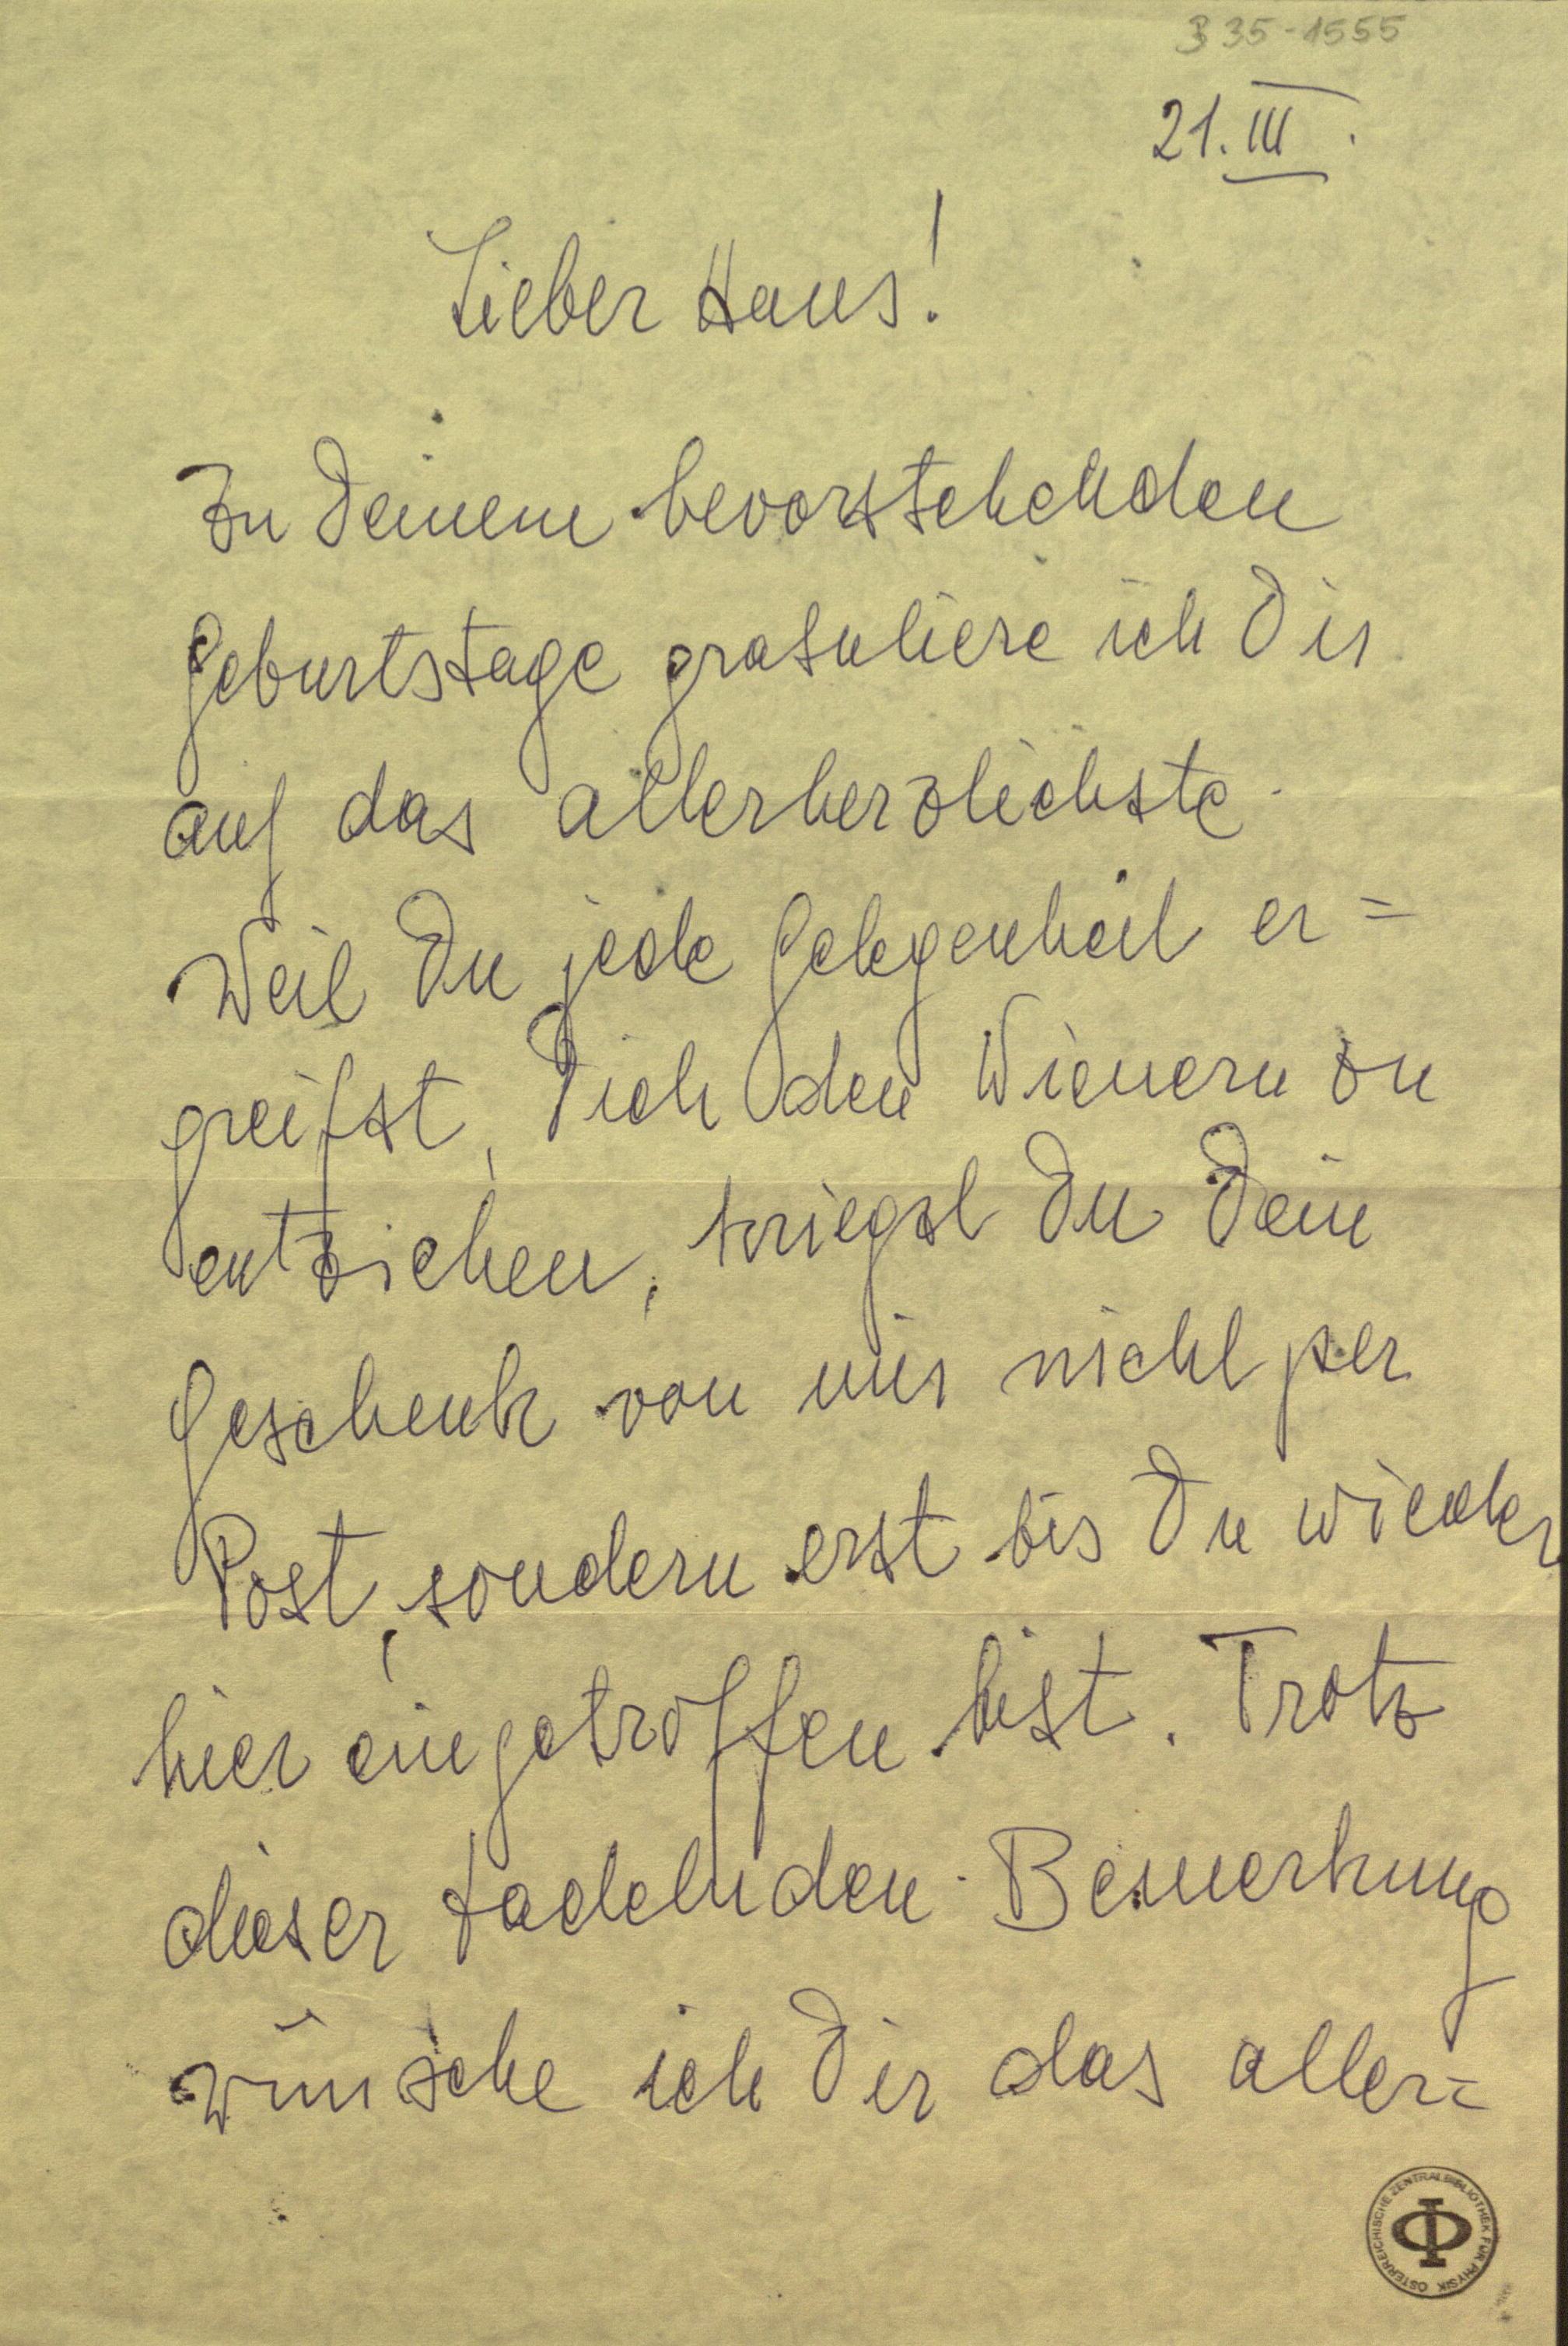 B35-1555
21. III.
Lieber Hans!
Zu Deinem bevorstehenden
Geburtstage gratuliere ich Dir
auf das allerherzlichste.
Weil Du jede Gelegenheit er=
greifst, Dich den Wienern zu
entziehen, kriegst Du Dein
Geschenk von mir nicht per
Post, sondern erst bis Du wieder
hier eingetroffen bist. Trotz
dieser tadelnden Bemerkung
wünsche ich Dir das aller=
ÖSTERREICHISCHE ZENTRALBIBLIOTHEK FÜR PHYSIK
Φ